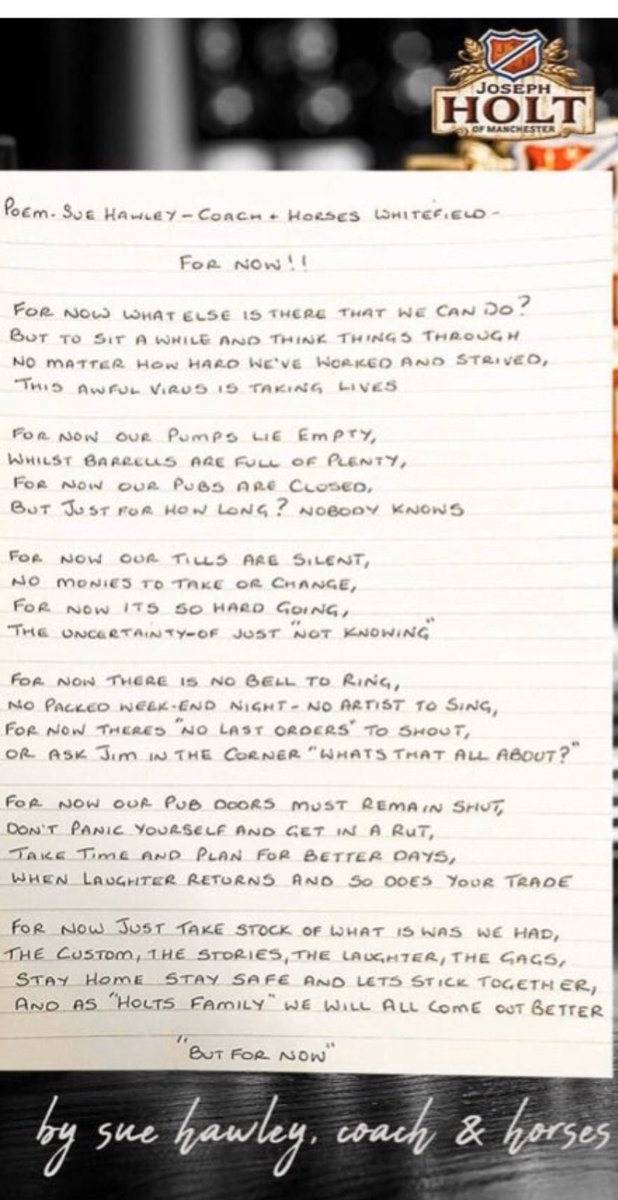 JOSEPH
HOLT
OF MANCHESTER
POEM. SUE HAWLEY - COACH + HORSES WHITEFIELD -
FOR NOW!!
FOR NOW WHAT ELSE IS THERE THAT WE CAN DO?
BUT TO SIT A WHILE AND THINK THINGS THROUGH
NO MATTER HOW HARD WE'VE WORKED AND STRIVED,
THIS AWFUL VIRUS IS TAKING LIVES
FOR NOW OUR PUMPS LIE EMPTY,
WHILST BARRELLS ARE FULL OF PLENTY,
FOR NOW OUR PUBS ARE CLOSED,
BUT JUST FOR HOW LONG? NOBODY KNOWS
FOR NOW OUR TILLS ARE SILENT,
NO MONIES TO TAKE OR CHANGE,
FOR NOW ITS SO HARD GOING,
THE UNCERTAINTY-OF JUST "NOT KNOWING"
FOR NOW THERE IS NO BELL TO RING,
NO PACKED WEEK-END NIGHT - NO ARTIST TO SING,
FOR NOW THERES "NO LAST ORDERS" TO SHOUT,
OR ASK JIM IN THE CORNER "WHATS THAT ALL ABOUT?"
FOR NOW OUR PUB DOORS MUST REMAIN SHUT,
DON'T PANIC YOURSELF AND GET IN A RUT,
TAKE TIME AND PLAN FOR BETTER DAYS,
WHEN LAUGHTER RETURNS AND SO DOES YOUR TRADE
FOR NOW JUST TAKE STOCK OF WHAT IS WAS WE HAD,
THE CUSTOM, THE STORIES, THE LAUGHTER, THE GAGS,
STAY HOME STAY SAFE AND LETS STICK TOGETHER,
AND AS "HOLTS FAMILY" WE WILL ALL COME OUT BETTER
"BUT FOR NOW"
by sue hawley, coach & horses